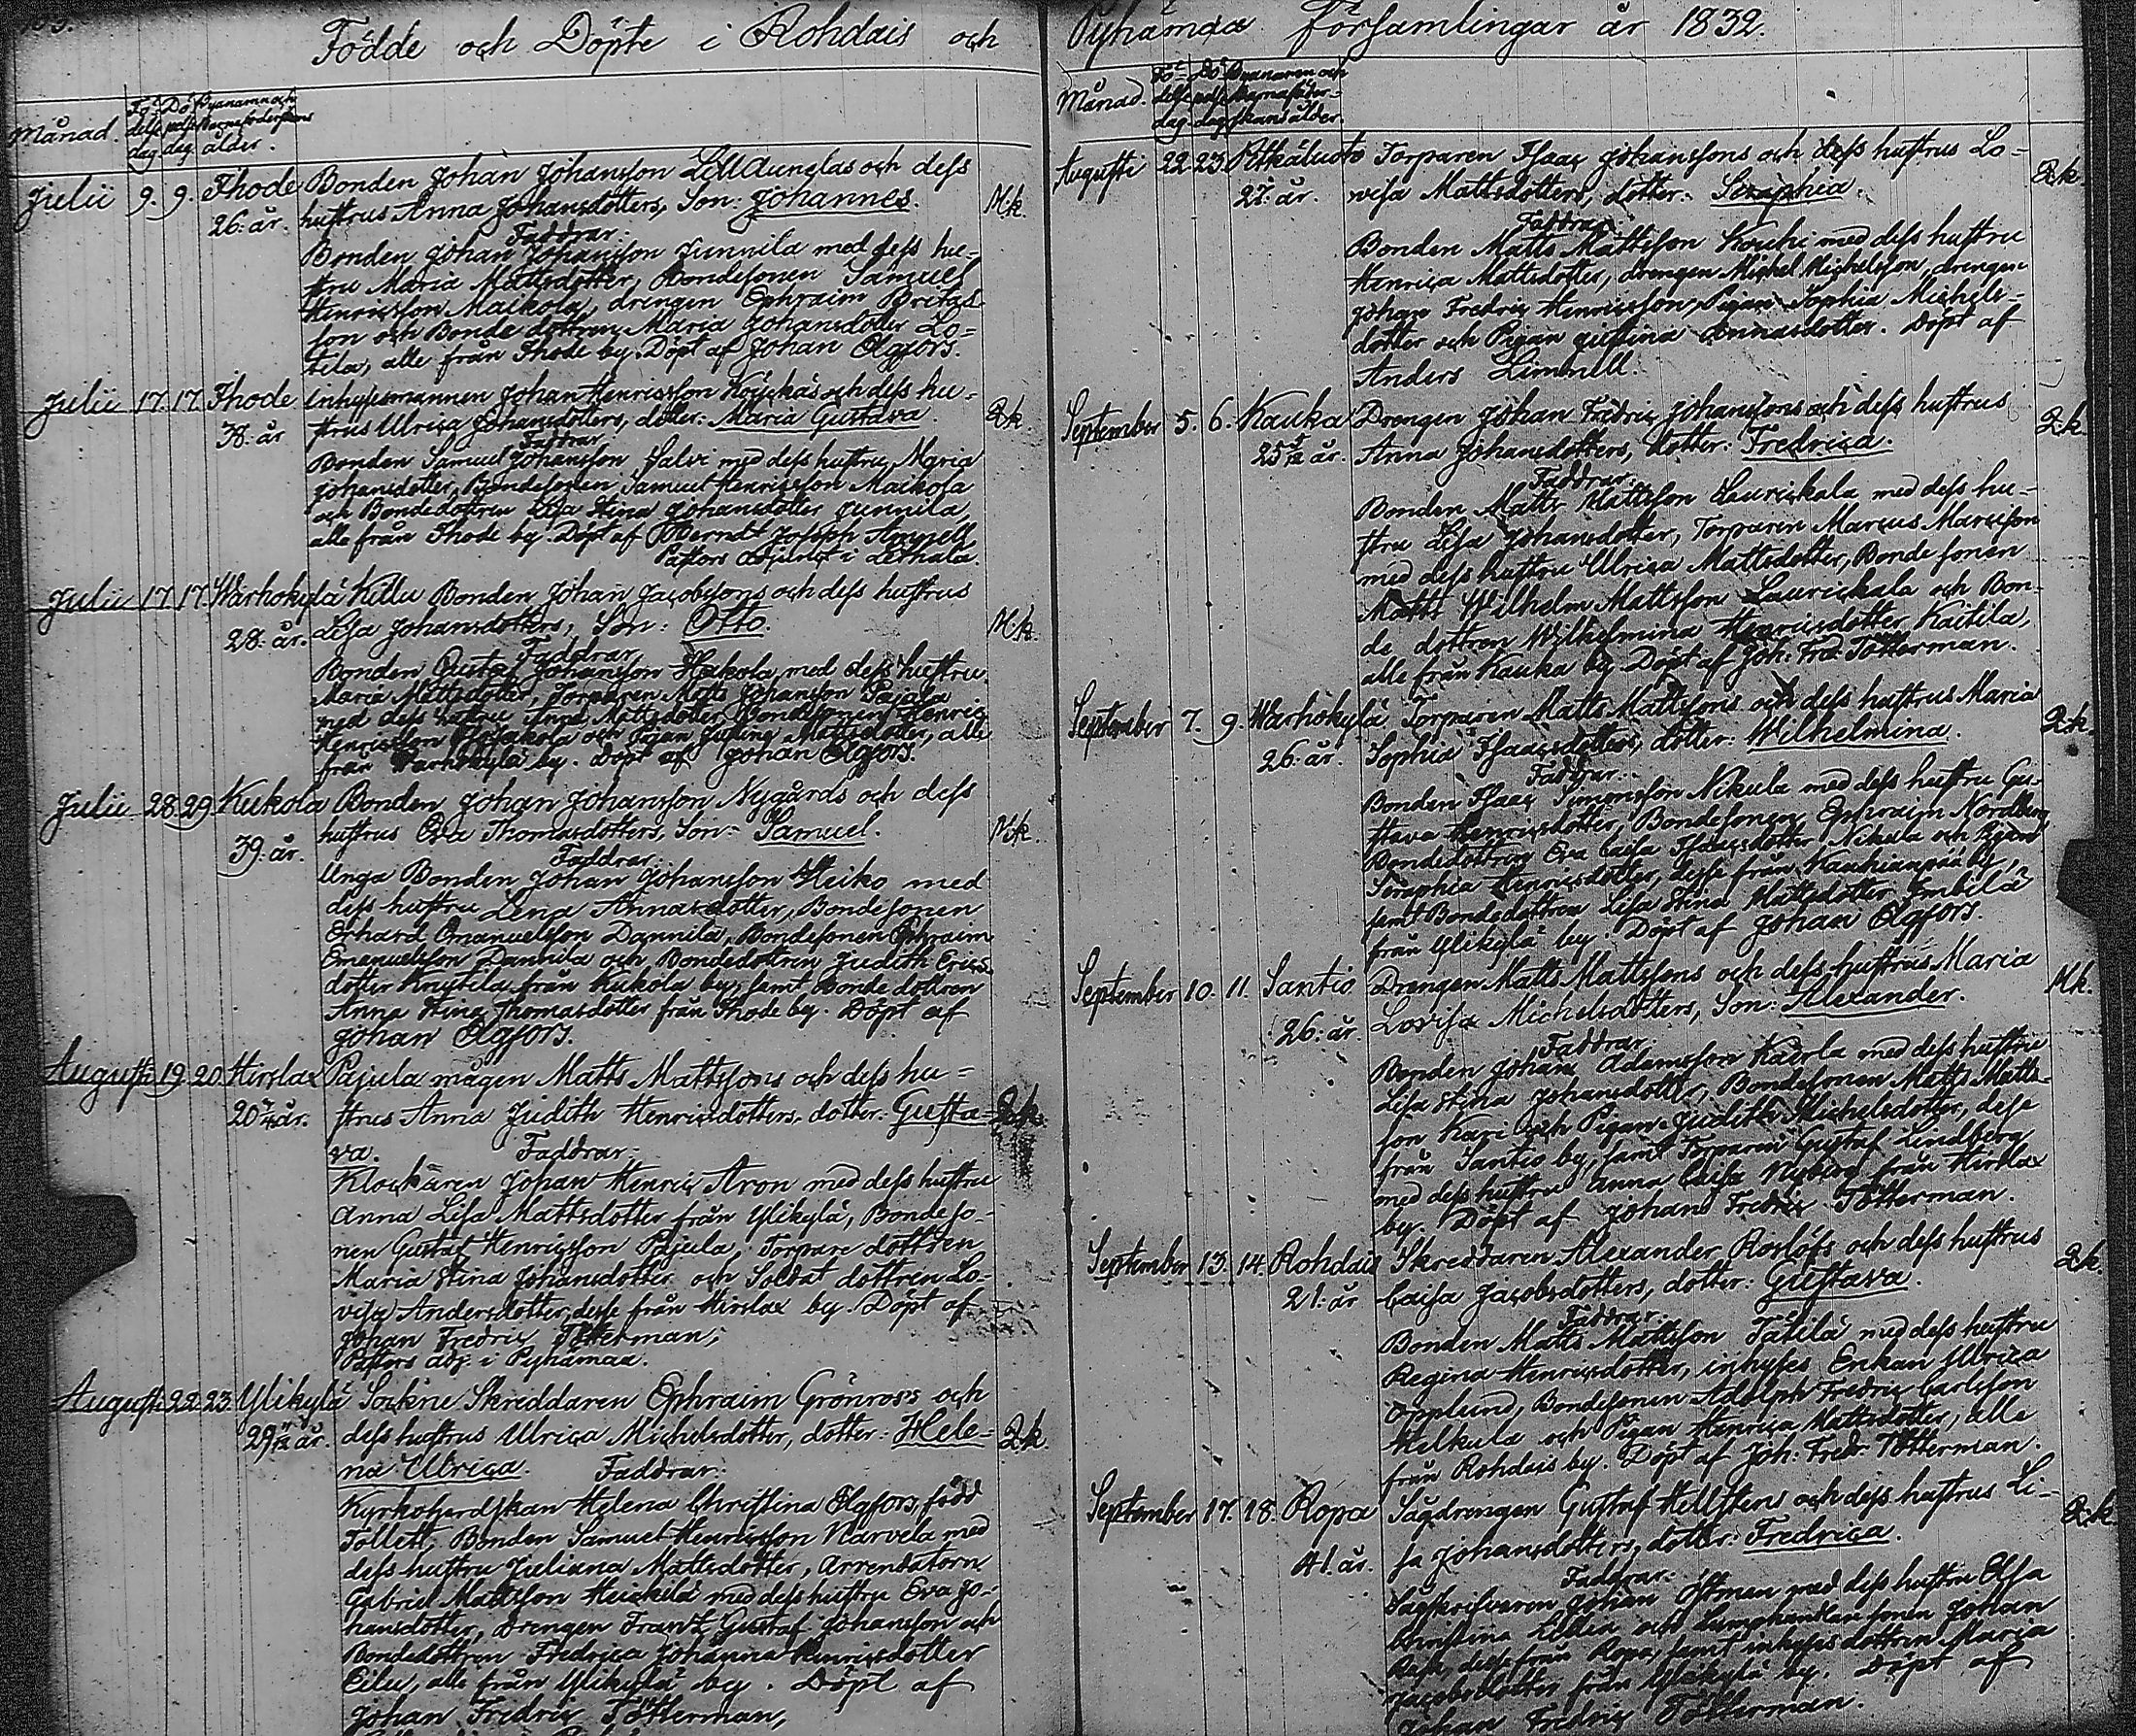 Födde och Döpte i Rohdais och
Månad. Fö- delse dag. Dö- pelse dag Byanamn och Barnaföderskans ålder.
Julii 9. 9. Ihode Bonden Johan Johansson Lilldunglas och dess
26: år. hustrus Anna Johansdotters, Son: Johannes. M.k.
Faddrar:
Bonden Johan Johansson Junnila med dess hu-
stru Maria Mattsdotter, Bondesonen Samuel
Henricsson Maikola, drengen Ephraim Britas-
son och Bonde dottren Maria Johansdotter Lo-
tila, alle från Ihode by. Döpt af Johan Elgfors.
Julii 17. 17. Ihode Inhysesmannen Johan Henricsson Koijkäs och dess hu-
38: år strus Ulrica Johansdotters, dotter: Maria Gustava. Q.k.
Faddrar
Bonden Samuel Johansson Salvi med dess hustru Maria
Johansdotter, Bondesonen Samuel Henricsson Maikola
och Bondedottren Lisa Stina Johansdotter Junnila,
alle från Ihode by. Döpt af Berndt Joseph
Pastors Adjunct i Lethala.
Julii 17. 17. Warhokylä Killu Bonden Johan Jacobssons och dess hustrus
28: år. Lisa Johansdotters, Son: Otto. M.k.
Faddrar
Bonden Gustaf Johansson Hakola med dess hustru
Maria Mattsdotter, Torparen Matts Johansson Pajala
med dess hustru Anna Mattsdotter, Bondesonen Henric
Henricsson och Pigan Justina Mattsdotter, alle
från Warhokylä by. Döpt af Johan Elgfors.
Julii 28. 29. Kukola Bonden Johan Johansson Nygårds och dess
39: år. hustrus Eva Thomasdotters, Son: Samuel. M.k.
Faddrar
Unga Bonden Johan Johansson Heiko med
dess hustru Lena Annasdotter, Bondesonen
Erhard Emanuelsson Dannila, Bondesonen Ephraim
Emanuelsson Dannila och Bondedottren Judith Erics-
dotter Knutila från Kukola by, samt Bonde dottren
Anna Stina Thomasdotter från Ihode by. Döpt af
Johan Elgfors.
Augusti 19 20 Hirslax Pajula mågen Matts Mattssons och dess hu-
20 år. strus Anna Judith Henricsdotters, dotter: Gusta- Q.k.
va. Faddrar:
Klockaren Johan Henric Aron med dess hustru
Anna Lisa Mattsdotter från Ylikylä, Bondeso-
nen Gustaf Henricsson Pajula, Torpare dottren
Maria Stina Johansdotter och Soldat dottren Lo-
visa Andersdotter, desse från Hirslax by. Döpt af
Johan Fredric Tötterman,
Pastors adj. i Pyhämaa.
Augusti 22. 23. Ylikylä Sockne Skreddaren Ephraim Grönroos och
29 år. dess hustrus Ulrica Michelsdotter, dotter: Hele- Q.k.
na Ulrica. Faddrar:
Kyrkoherdskan Helena Christina Elgfors, född
Tollett, Bonden Samuel Henricsson Narvela med
dess hustru Juliana Mattsdotter, Arrendatorn
Gabriel Mattsson Heickilä med dess hustru Eva Jo-
hansdotter, Drengen Frantz Gustaf Johansson och
Bondedottren Fredrica Johanna Henricsdotter
Eilu, alle från Ylikylä by. Döpt af
Johan Fredric Tötterman,
Pyhämaa Församlingar år 1832.
Månad. Fö- delse dag. Dö- pelse dag Byanamn och Barnaföder- skans ålder.
Augusti 22 23 Pitkäluoto Torparen Isaac Johanssons och dess hustrus Lo-
27: år. visa Mattsdotters, dotter: Seraphia. Q.k.
Faddrar
Bonden Matts Mattsson Kouhi med dess hustru
Henrica Mattsdotter, drengen Michel Michelsson, drengen
Johan Fredric Henricsson, Pigan Sophia Michels-
dotter och Pigan Justina Annasdotter. Döpt af
Anders Limnell.
September 5. 6. Kauka Drengen Johan Fredric Johanssons och dess hustrus
25 5/12 år. Anna Johansdotters, dotter: Fredrica. Q.k.
Faddrar.
Bonden Matts Mattsson Laurickala med dess hu-
stru Lisa Johansdotter, Torparen Marcus Marcisson
med dess hustru Ulrica Mattsdotter, Bonde sonen
Matts Wilhelm Mattsson Laurickala och Bon-
de dottren Wilhelmina Henricsdotter Kaitila,
alle från Kauka by. Döpt af Joh: Fred: Tötterman.
September 7. 9. Warhokylä Torparen Matts Mattssons och dess hustrus Maria
26: år. Sophia Isaacsdotters, dotter: Wilhelmina. Q.k.
Faddrar:
Bonden Isaac Simonsson Nikula med dess hustru Gu-
stava Henricsdotter, Bondesonen Ephraim Nordberg,
Bondedottren Eva Caisa Isaacsdotter Nikula och Pigan
Seraphia Henricsdotter, desse från Kaukianpää by,
samt Bondedottren Lisa Stina Mattsdotter Imbilä
från Ylikylä by. Döpt af Johan Elgfors.
September 10. 11. Santio Drengen Matts Mattssons och dess hustrus Maria
26: år. Lovisa Michelsdotters, Son: Alexander. M.k.
Faddrar:
Bonden Johan Adamsson Kaerla med dess hustru
Lisa Stina Johansdotter, Bondesonen Matts Matts-
son Kari och Pigan Judith Michelsdotter, desse
från Santio by, samt Torparen Gustaf Lindberg
med dess hustru Anna Caisa Nyberg från Hirslax
by. Döpt af Johan Fredric Tötterman.
September 13. 14. Rohdais Skreddaren Alexander Roslöfs och dess hustrus
21: år Caisa Jacobsdotters, dotter: Gustava. Q.k.
Faddrar:
Bonden Matts Mattsson Tätilä med dess hustru
Regina Henricsdotter, inhyses Enkan Ulrica
Opplund, Bondesonen Adolph Fredric Carlsson
Helkula och Pigan Henrica Mattsdotter, alle
från Rohdais by. Döpt af Joh: Fredr: Tötterman.
September 17. 18. Ropa Sågdrengen Gustaf Hellstens och dess hustrus Li-
41. år. sa Johansdotters, dotter: Fredrica. Q.k.
Faddrar:
Sågskrifvaren Johan Östman med dess hustru Elsa
Christina och sonen Johan
Rask, desse från Ropa, samt inhyses dottren Maria
Jacobsdotter från Ylikylä by. Döpt af
Johan Fredric Tötterman.